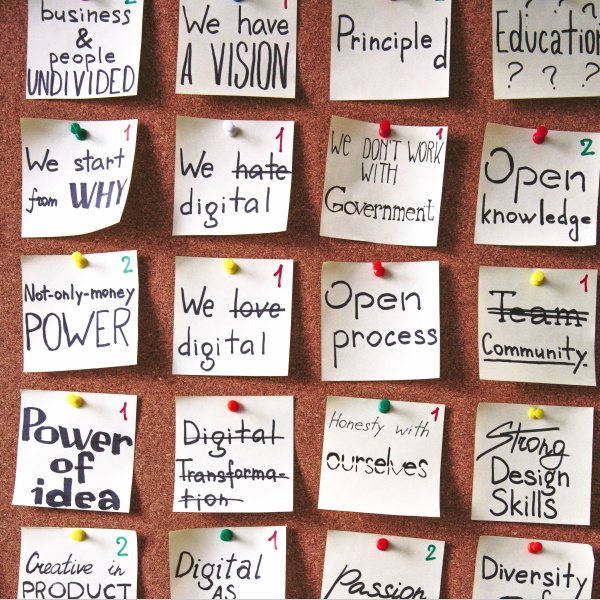 2
business
&
people
UNDIVIDED
1
We have
A VISION
Principled
Education
? ? ?
1
We start
from WHY
1
We hate
digital
1
WE DON'T WORK
WITH
Government
2
Open
knowledge
2
Not-only-money
POWER
1
We love
digital
Open
process
1
Team
Community.
1
Power
of
idea
Digital
Transforma-
tion
1
Honesty with
ourselves
Strong
Design
Skills
2
Creative in
PRODUCT
1
Digital
AS
2
Passion
Diversity